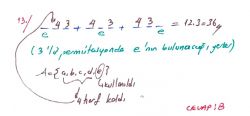 13.) 4 3 + 4 3 + 4 3 = 12.3=36
e e e
(3'lü permütasyonda e'nin bulunacağı yerler)
A={a,b,c,d,e}
kullanıldı
4 harf kaldı
CEVAP: B